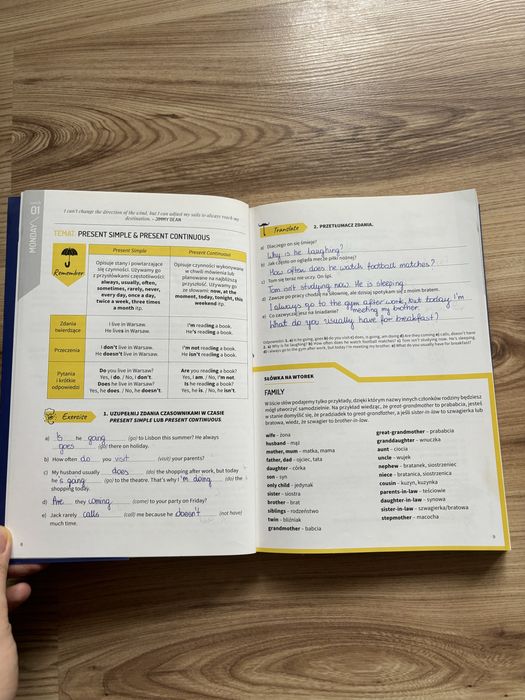 01
MONDAY
I can't change the direction of the wind, but I can adjust my sails to always reach my
destination. – JIMMY DEAN
TEMAT: PRESENT SIMPLE & PRESENT CONTINUOUS
Remember
Present Simple
Present Continuous
Opisuje stany i powtarzające
się czynności. Używamy go
z przysłówkami częstotliwości:
always, usually, often,
sometimes, rarely, never,
every day, once a day,
twice a week, three times
a month itp.
Opisuje czynności wykonywane
w chwili mówienia lub
planowane na najbliższą
przyszłość. Używamy go
ze słowami: now, at the
moment, today, tonight, this
weekend itp.
Zdania
twierdzące
I live in Warsaw.
He lives in Warsaw.
I'm reading a book.
He's reading a book.
Przeczenia
I don't live in Warsaw.
He doesn't live in Warsaw.
I'm not reading a book.
He isn't reading a book.
Pytania
i krótkie
odpowiedzi
Do you live in Warsaw?
Yes, I do. / No, I don't.
Does he live in Warsaw?
Yes, he does. / No, he doesn't.
Are you reading a book?
Yes, I am. / No, I'm not.
Is he reading a book?
Yes, he is. / No, he isn't.
Exercise
1. UZUPEŁNIJ ZDANIA CZASOWNIKAMI W CZASIE
PRESENT SIMPLE LUB PRESENT CONTINUOUS.
a) Is he going (go) to Lisbon this summer? He always
goes (go) there on holiday.
b) How often do you visit (visit) your parents?
c) My husband usually does (do) the shopping after work, but today
he is going (go) to the theatre. That's why I 'm doing (do) the
shopping today.
d) Are they coming (come) to your party on Friday?
e) Jack rarely calls (call) me because he doesn't (not have)
much time.
8
Translate
2. PRZETŁUMACZ ZDANIA.
a) Dlaczego on się śmieje?
Why is he laughing?
b) Jak często on ogląda mecze piłki nożnej?
How often does he watch football matches?
c) Tom się teraz nie uczy. On śpi.
Tom isn't studying now. He is sleeping.
d) Zawsze po pracy chodzę na siłownię, ale dzisiaj spotykam się z moim bratem.
I always go to the gym after work, but today I'm
meeting my brother.
e) Co zazwyczaj jesz na śniadanie?
What do you usually have for breakfast?
Odpowiedzi: 1. a) is he going, goes b) do you visit c) does, is going, am doing d) Are they coming e) calls, doesn't have
2. a) Why is he laughing? b) How often does he watch football matches? c) Tom isn't studying now. He's sleeping.
d) I always go to the gym after work, but today I'm meeting my brother. e) What do you usually have for breakfast?
SŁÓWKA NA WTOREK
FAMILY
W liście słów podajemy tylko przykłady, dzięki którym nazwy innych członków rodziny będziesz
mógł stworzyć samodzielnie. Na przykład wiedząc, że great-grandmother to prababcia, jesteś
w stanie domyślić się, że pradziadek to great-grandfather, a jeśli sister-in-law to szwagierka lub
bratowa, wiedz, że szwagier to brother-in-law.
wife – żona
husband – mąż
mother, mum – matka, mama
father, dad – ojciec, tata
daughter – córka
son – syn
only child – jedynak
sister – siostra
brother – brat
siblings – rodzeństwo
twin – bliźniak
grandmother – babcia
great-grandmother – prababcia
granddaughter – wnuczka
aunt – ciocia
uncle – wujek
nephew – bratanek, siostrzeniec
niece – bratanica, siostrzenica
cousin – kuzyn, kuzynka
parents-in-law – teściowie
daughter-in-law – synowa
sister-in-law – szwagierka/bratowa
stepmother – macocha
9